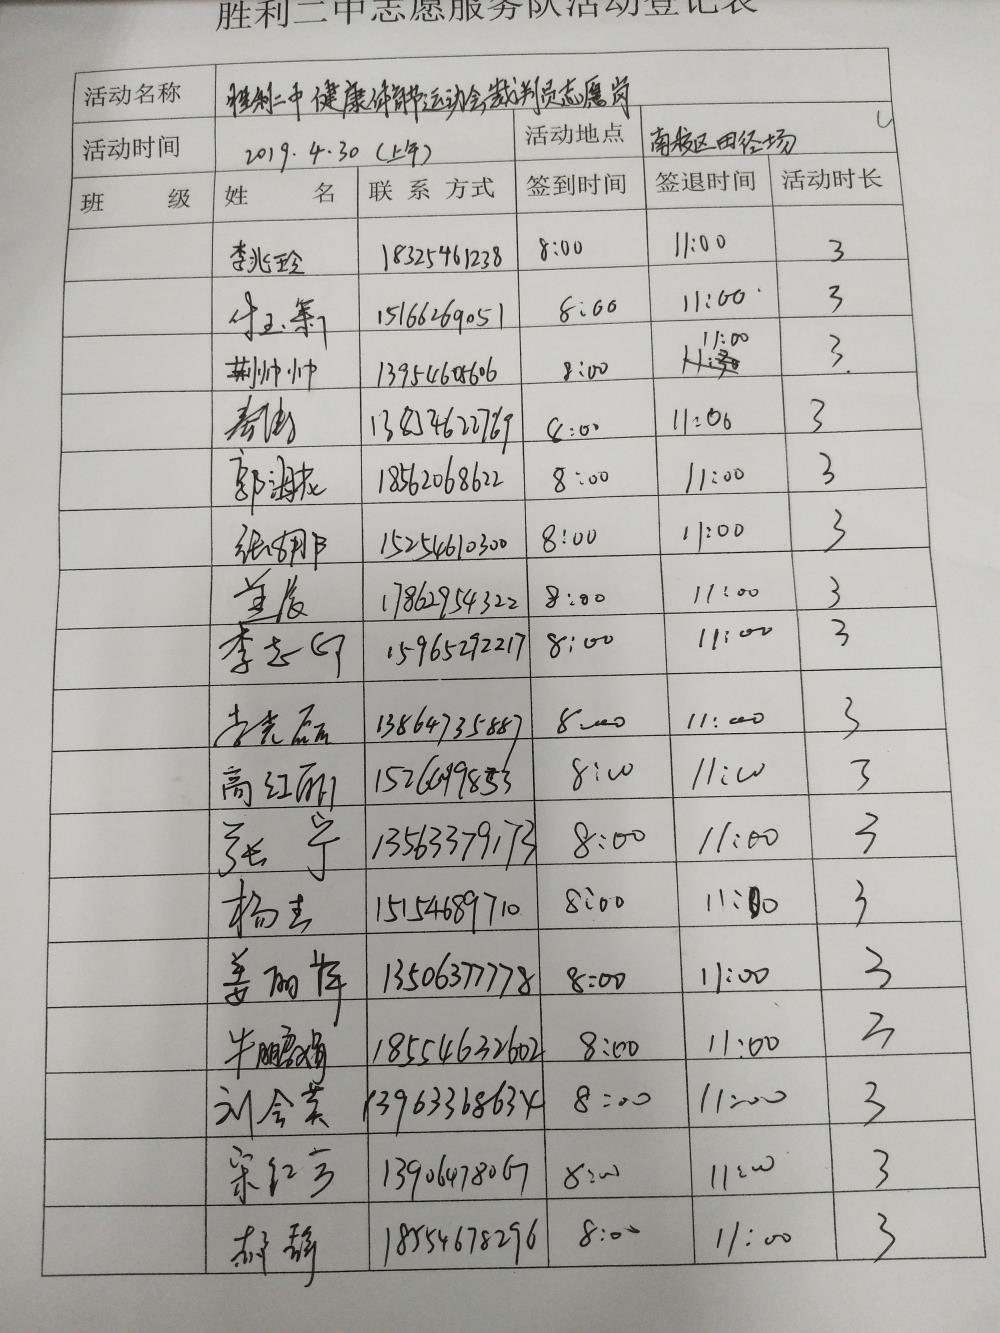 胜利二中志愿服务队活动登记表
活动名称 胜利二中健康体育节运动会裁判员志愿岗
活动时间 2019.4.30（上午） 活动地点 南校区田径场
班 级 姓 名 联 系 方式 签到时间 签退时间 活动时长
李兆玲 18325461238 8:00 11:00 3
15166269051 8:00 11:00 3
荆帅帅 13954605606 8:00 11:00 3
秦涛 13854622769 8:00 11:00 3
郭海龙 18562068622 8:00 11:00 3
张娜 15254610300 8:00 11:00 3
17862954322 8:00 11:00 3
李志 15965292217 8:00 11:00 3
李克磊 13864735887 8:00 11:00 3
高红丽 8:00 11:00 3
张宁 13563379173 8:00 11:00 3
杨志 15154689710 8:00 11:00 3
姜丽萍 13506377778 8:00 11:00 3
牛鹏娟 18554632602 8:00 11:00 3
刘会英 13963368634 8:00 11:00 3
宋红 13906478067 8:00 11:00 3
郝静 18554678296 8:00 11:00 3